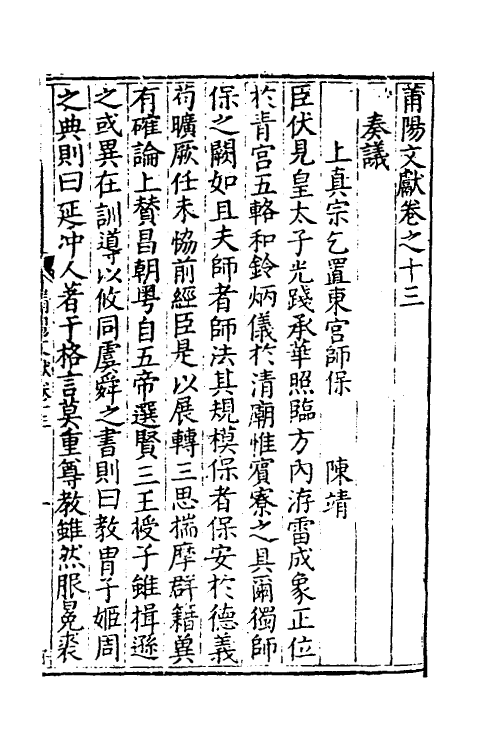 莆陽文獻卷之十三
奏議
上真宗乞置東宮師保　陳靖
臣伏見皇太子光踐承華照臨方內洊雷成象正位
於青宮五輅和鈴炳儀於清廟惟賓寮之具爾獨師
保之闕如且夫師者師法其規模保者保安於德義
苟曠厥任未恊前經臣是以展轉三思揣摩群籍冀
有確論上賛昌朝粵自五帝選賢三王授子雖揖遜
之或異在訓導以攸同虞舜之書則曰教胄子姬周
之典則曰延冲人著于格言莫重尊教雖然服冕裘